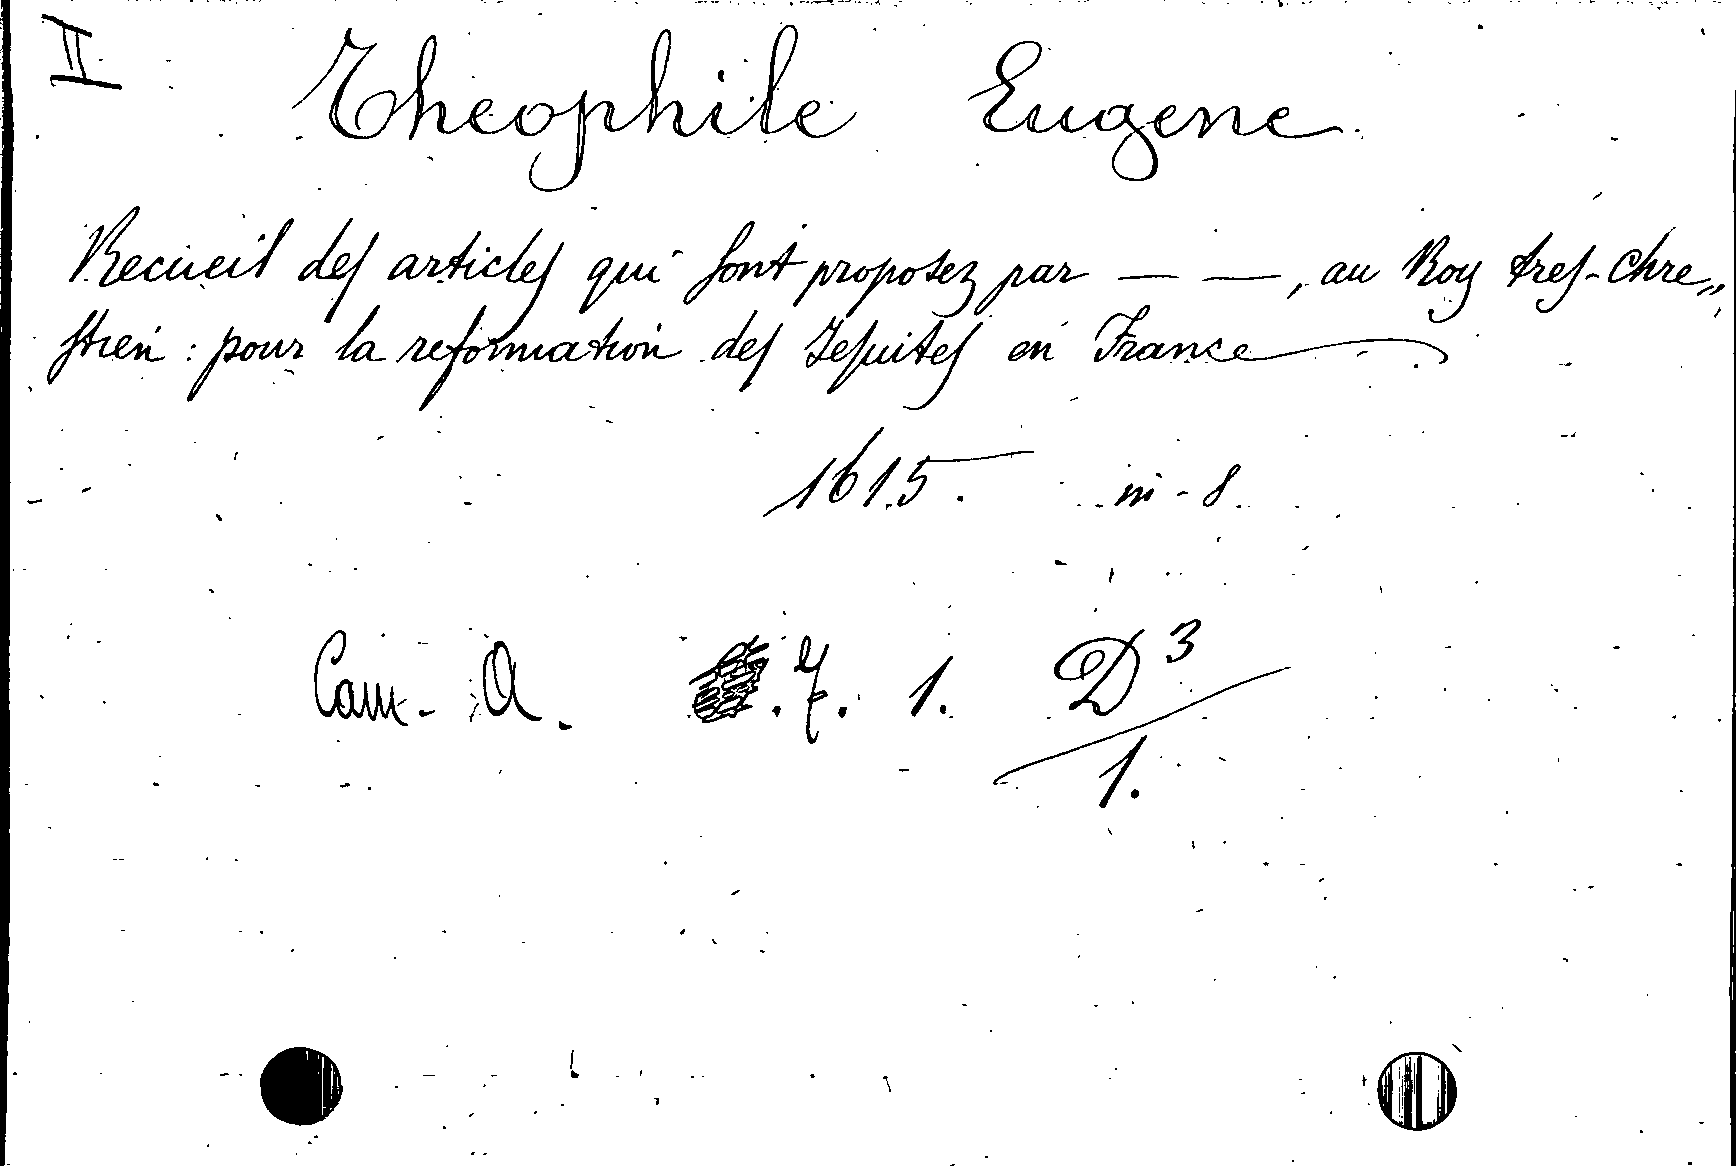 II
Theophile Eugene
Recueil des articles qui sont proposez par — —, au Roy tres-chre„
stien : pour la reformation des Jesuites en France
1615. in-8.
Cam. A. .7. 1. D³
1.